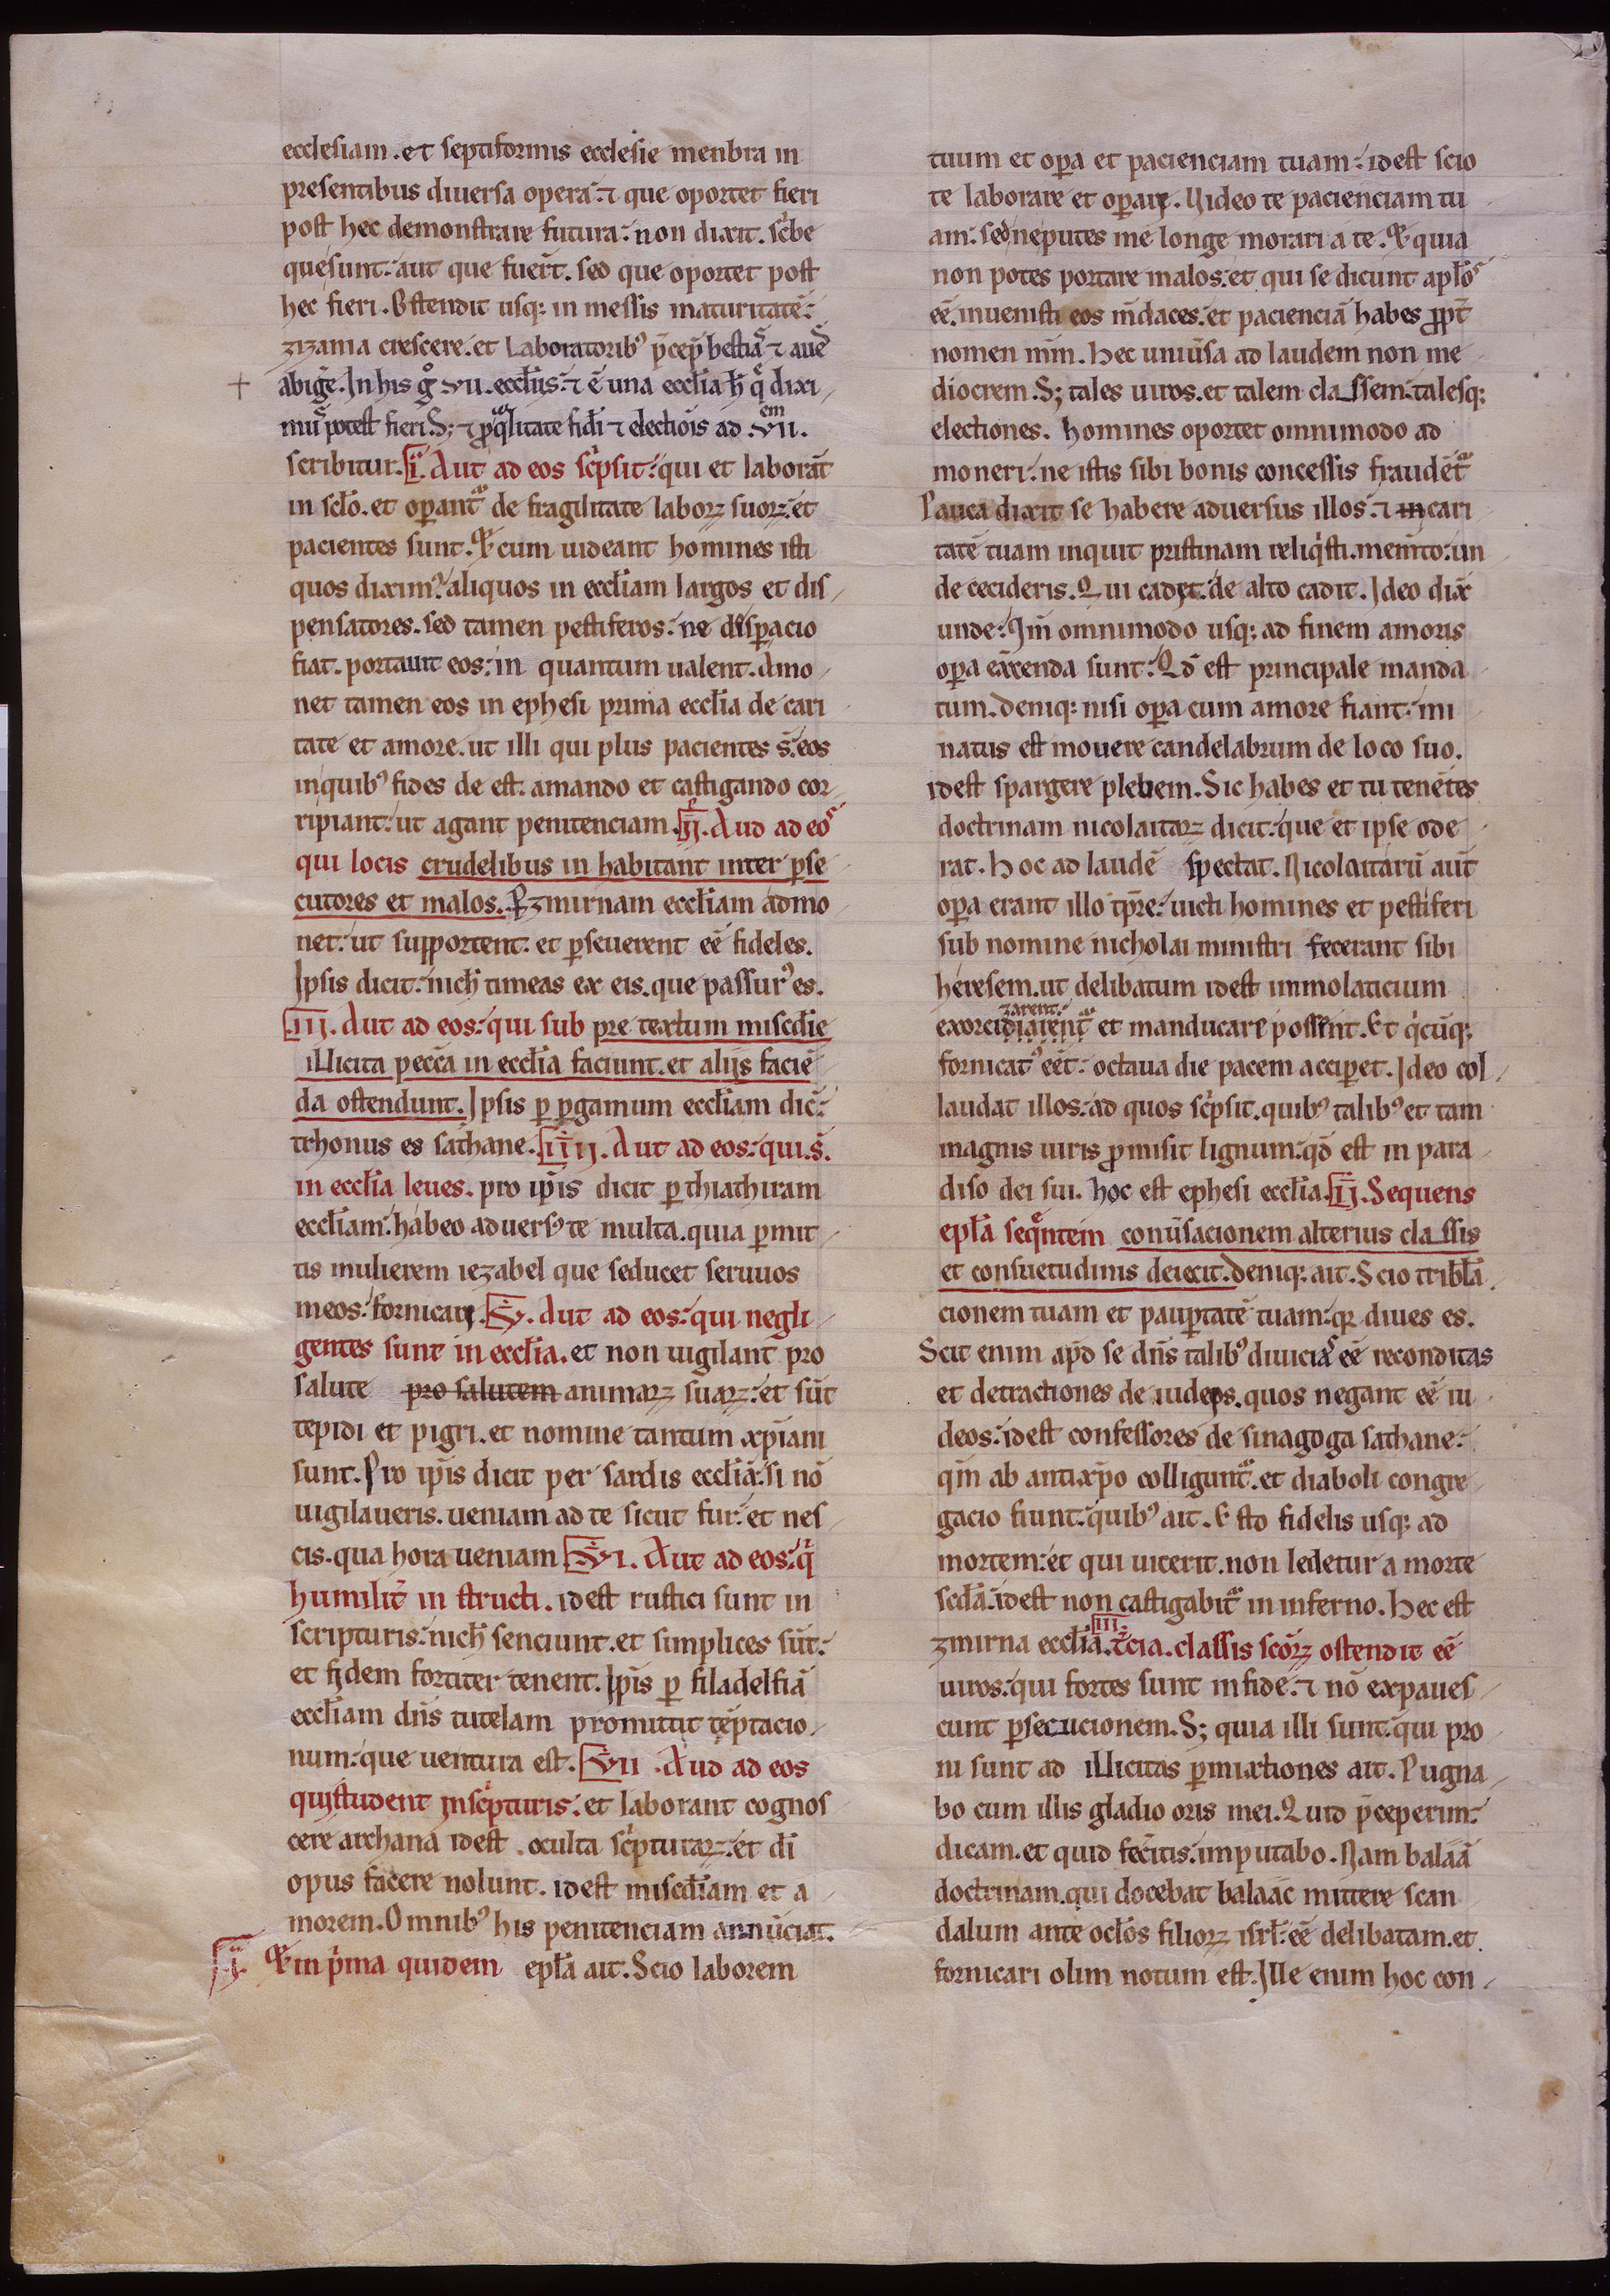 ecclesiam. et septiformis ecclesie menbra in
presentibus diuersa opera: ⁊ que oportet fieri
post hec demonstrare futura: non dixit. sc̓be
que sunt: aut que fuer̄t. sed que oportet post
hec fieri. Ostendit usq; in messis maturitatē:
zizania crescere. et Laboratorib⁹ p̄cep̄ bestiaˢ ⁊ aueˢ
abigē. In his gͦ .vii. ecclīis: ⁊ ē una ecclīa h̄ qͣ dixi
mus̓ potest fieri. S; ⁊ ꝓ qͣlitate fidī ⁊ electiōis ad .vii.em
scribitur. I. Aut ad eos sc̓psit: qui et laborāt
in sclō. et oꝑantᷣ de fragilitate laboꝝ suoꝝ: et
pacientes sunt. Et cum uideant homines isti
quos diximꝰ aliquos in ecclīam largos et dis
pensatores. sed tamen pestiferos: ne disꝑacio
fiat. portauit eos: in quantum ualent. Amo
net tamen eos in ephesi prima ecclīa de cari
tate et amore. ut illi qui plus pacientes s̄: eos
in quibꝰ fides de est. amando et castigando cor
ripiant: ut agant penitenciam. II. Aud ad eoˢ
qui locis crudelibus in habitant inter ꝑse
cutores et malos. Ꝑ zmirnam ecclīam admo
net: ut supportent: et ꝑseuerent eē fideles.
Ipsis dicit: nich̄ timeas ex eis. que passurꝰ es.
III. Aut ad eos: qui sub pretextum misc̄die
illicita pecc̄a in ecclīa faciunt. et aliis faciē
da ostendunt. Ipsis ꝑ ꝑgamum ecclīam dic̄:
trhonus es sathane. IIII. Aut ad eos: qui s̄.
in ecclīa leues. pro ip̄is dicit ꝑ thiathiram
ecclīam: habeo aduersꝰ te multa. quia ꝑmit
tis mulierem iezabel que seducet seruuos
meos: fornicari. V. Aut ad eos: qui negli
gentes sunt in ecclīa. et non uigilant pro
salute pro salutem animaꝝ suaꝝ: et sūt
tepidi et pigri. et nomine tantum xp̄iani
sunt. Pro ip̄is dicit per sardis ecclīā: si nō
uigilaueris. ueniam ad te sicut fur: et nes
cis. qua hora ueniam VI. Aut ad eos: qͥ
humilit̄ in structi. idest rustici sunt in
scripturis: nich̄ senciunt. et simplices sūt:
et fidem fortiter tenent. Ip̄is ꝑ filadelfiā
ecclīam dn̄s tutelam promittit tēptacio
num: que uentura est. VII. Aud ad eos
qui student in sc̓pturis: et laborant cognos
cere archana idest oculta sc̓pturaꝝ: et dī
opus facere nolunt. idest misc̄diam et a
morem. Omnibꝰ his penitenciam annūciat.
I. Et in p̓ma quidem epl̄a ait. Scio laborem
tuum et oꝑa et pacienciam tuam: idest scio
te laborare et oꝑari. Video te pacienciam tu
am: sed ne putes me longe morari a te. Et quia
non potes portare malos: et qui se dicunt apl̄oˢ
eē. inuenisti eos m̄daces. et pacienciā habes ꝓpt̄
nomen m̄m. Hec uniūsa ad laudem non me
diocrem. S; tales uiros. et talem classem: talesq;
electiones. homines oportet omnimodo ad
moneri: ne istis sibi bonis concessis fraudētᷣ
Pauca dixit se habere aduersus illos: ⁊ in cari
tatē tuam inquit pristinam reliqͥsti. mem̄to: un
de cecideris. Qui cadet: de alto cadit. Ideo dix̄
unde: Qm̄ omnimodo usq; ad finem amoris
oꝑa exc̄enda sunt: Qd̄ est principale manda
tum. Deniq; nisi oꝑa cum amore fiant: mi
natus est mouere candelabrum de loco suo.
idest spargere plebem. Sic habes et tu tenētes
doctrinam nicolaitaꝝ dicit: que et ipse ode
rat. Hoc ad laudē spectat. Nicolaitarū aūt
oꝑa erant illo tp̄re: uicti homines et pestiferi
sub nomine nicholai ministri fecerant sibi
heresem. ut delibatum idest immolaticium
zarent
exorcidiarentᷣ et manducare possent. Et qͥcūq;
fornicatꝰ eēt: octaua die pacem acciꝑet. Ideo col
laudat illos: ad quos sc̓psit. quibꝰ talibꝰ et tam
magnis uiris ꝓmisit lignum: qd̄ est in para
diso dei sui. hoc est ephesi ecclīa. II. Sequens
epl̄a seqͣntem conūsacionem alterius classis
et consuetudinis deiecit. Deniq; ait. Scio tribl̄a
cionem tuam et pauꝑtatē tuam: q; diues es.
Scit enim apd̄ se dn̄s talibꝰ diuiciaˢ eē reconditas
et detractiones de iudeos. quos negant eē iu
deos: idest confessores de sinagoga sathane:
qm̄ ab antixp̄o colliguntᷣ. et diaboli congre
gacio fiunt: quibꝰ ait. Esto fidelis usq; ad
mortem: et qui uicerit. non ledetur a morte
scd̄a: idest non castigabitᷣ in inferno. Hec est
zmirna ecclīa. III. t̄cia. classis scōꝝ ostendit eē
uiros: qui fortes sunt in fide: ⁊ nō expaues
cunt ꝑsecucionem. S; quia illi sunt: qui pro
ni sunt ad illicitas ꝑmixtiones ait. Pugna
bo cum illis gladio oris mei. Quid p̄ceperim:
dicam. et quid fec̄itis: imputabo. Nam balaā
doctrinam. qui docebat balaac mittere scan
dalum ante ocl̄os filioꝝ isrl̄: eē delibatam. et
fornicari olim notum est. Ille enim hoc con